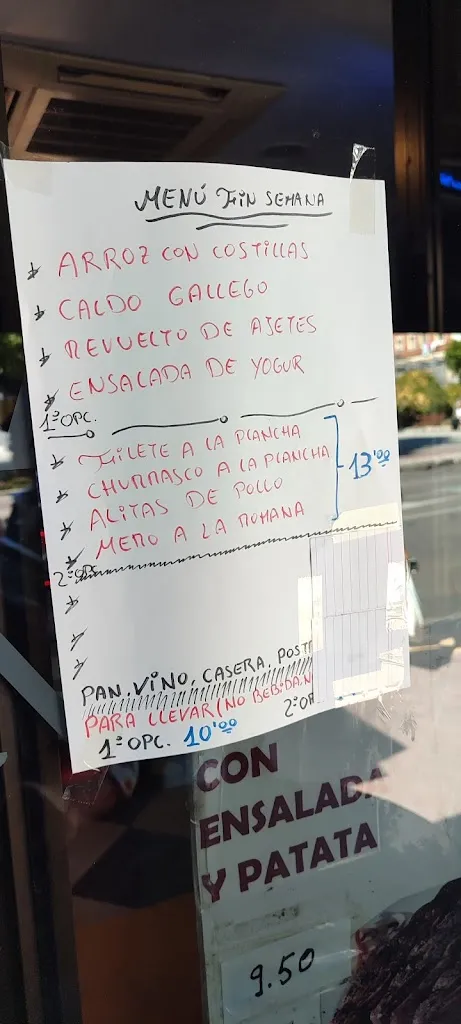 MENÚ FIN SEMANA
ARROZ CON COSTILLAS
CALDO GALLEGO
REVUELTO DE AJETES
ENSALADA DE YOGUR
1ª OPC.
FILETE A LA PLANCHA
CHURRASCO A LA PLANCHA
ALITAS DE POLLO
MERO A LA ROMANA
13'00
2ª OPC
PAN, VINO, CASERA, POST
PARA LLEVAR (NO BEBIDA, N
1ª OPC. 10'00 2ª OP
CON
ENSALADA
Y PATATA
9.50